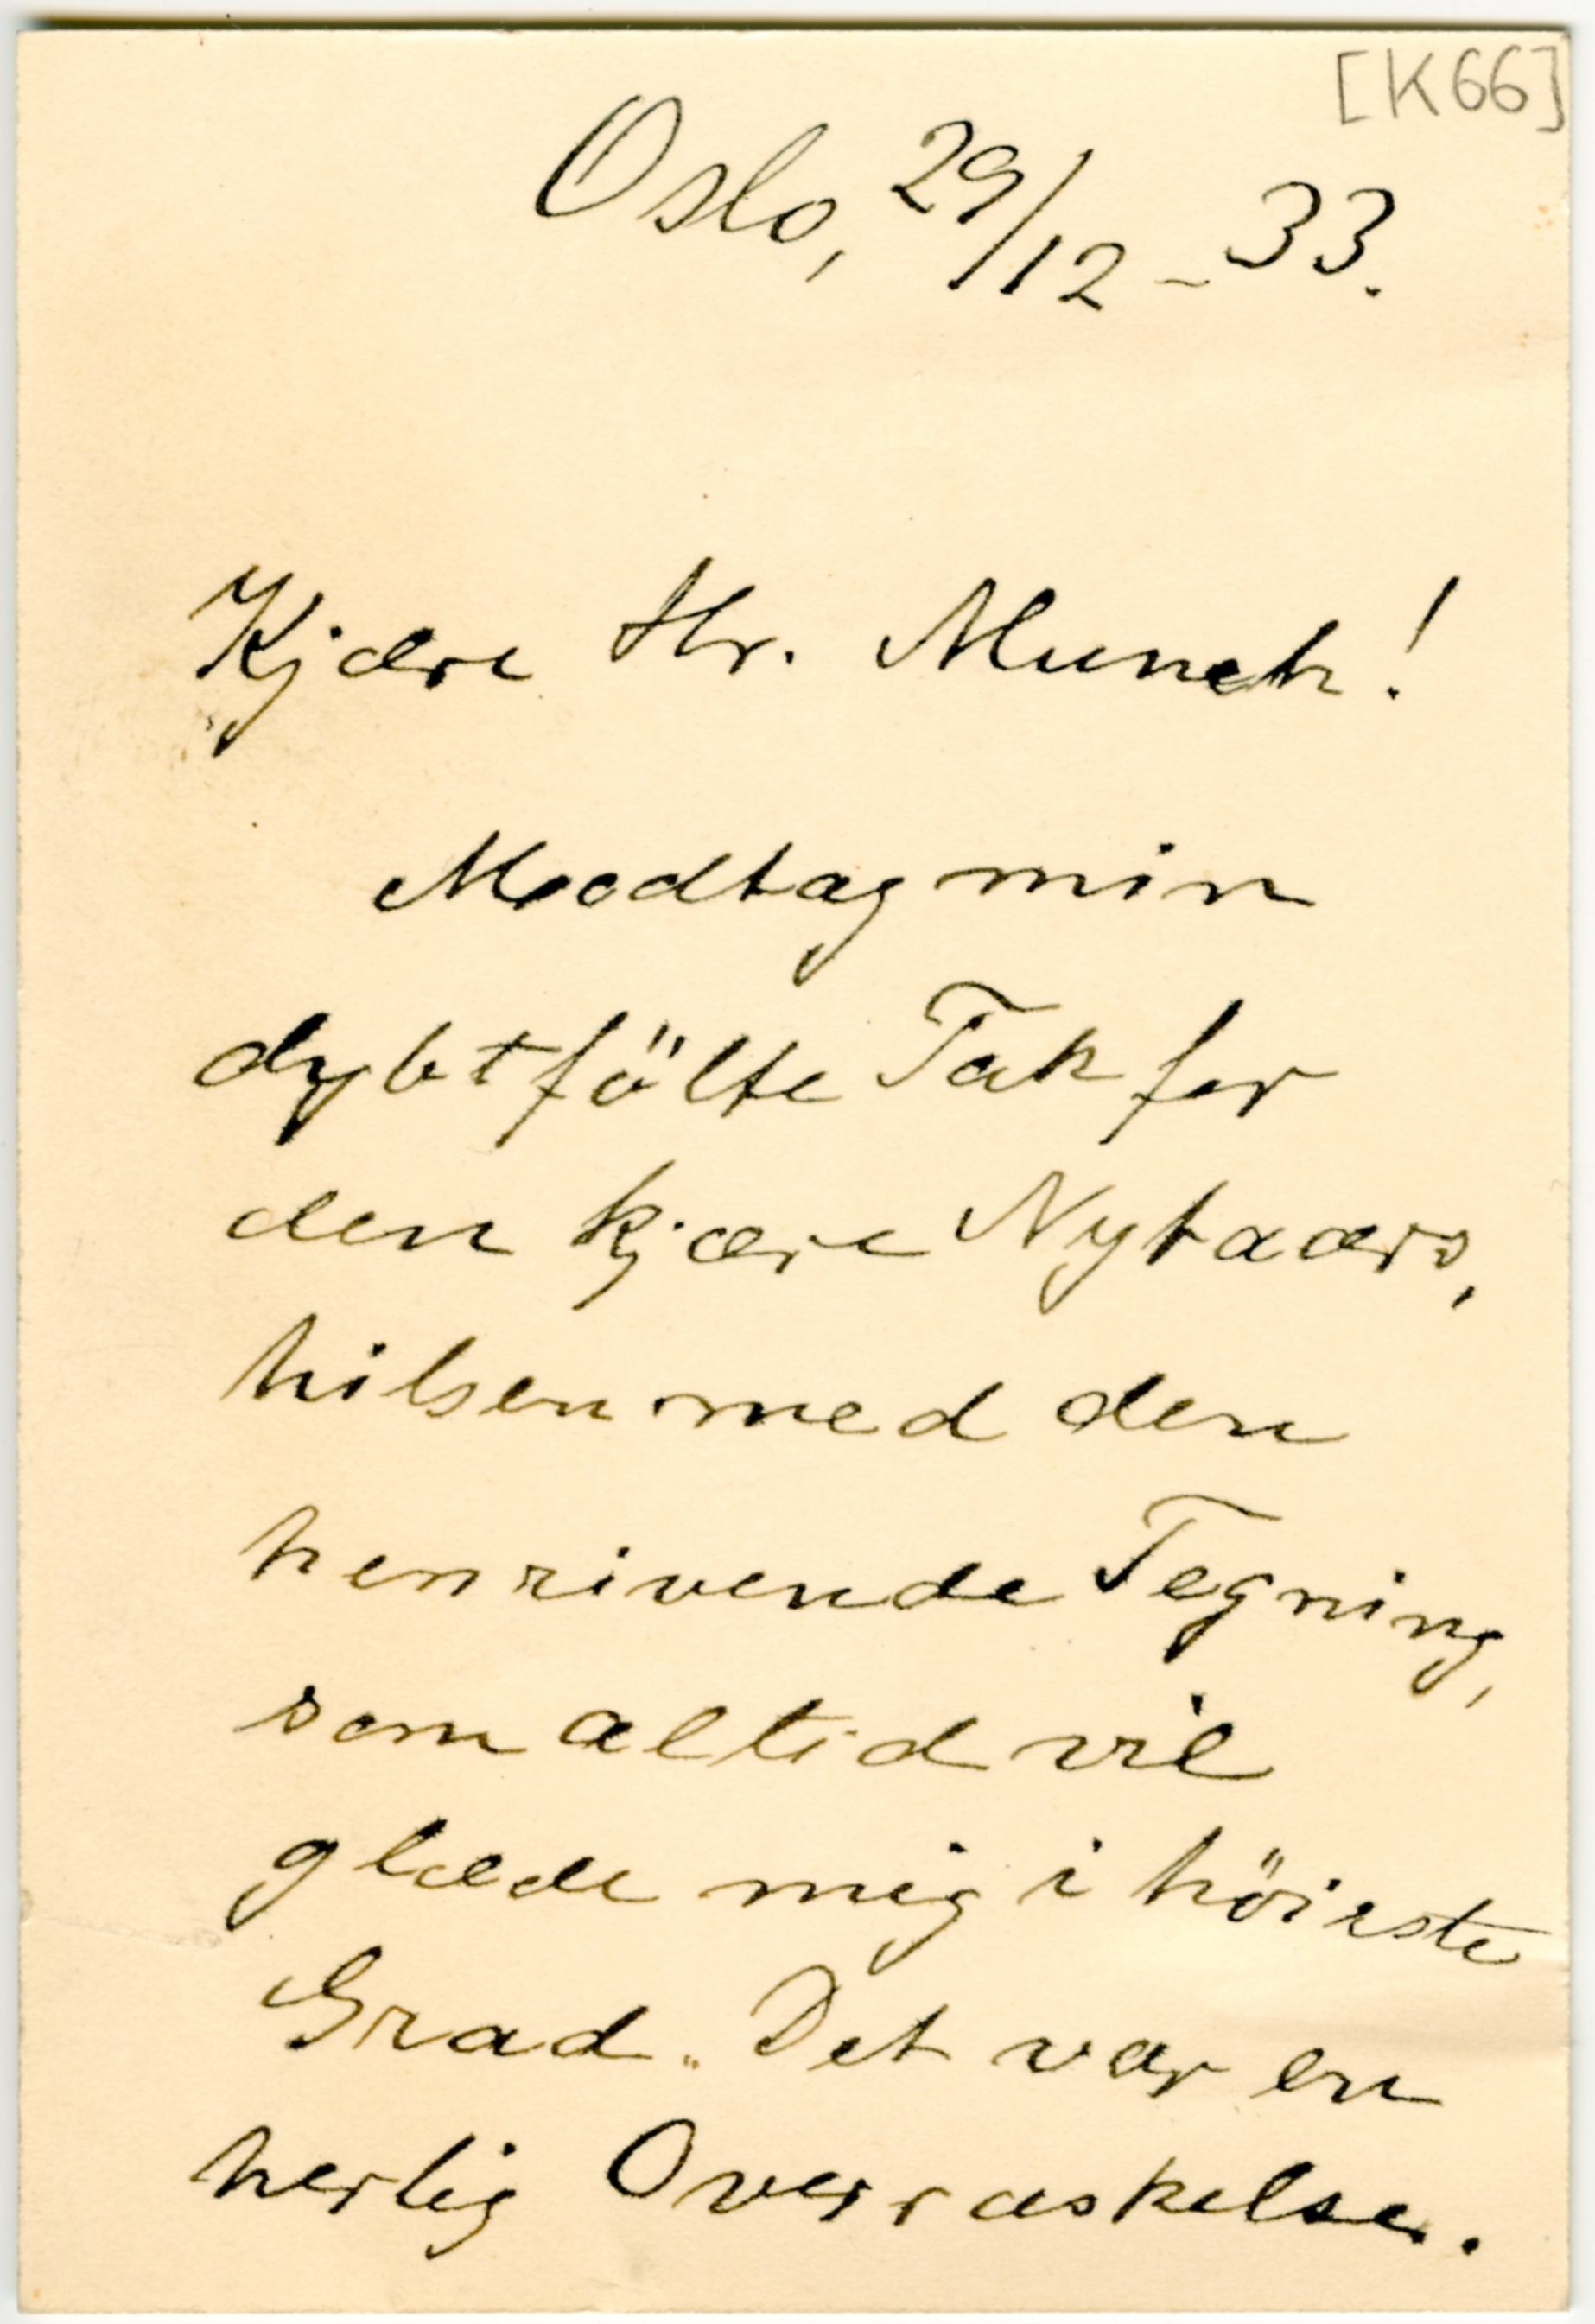 [K66]
Oslo, 29/12 - 33.
Kjære Hr. Munch!
Modtag min
dybtfölte Tak for
den kjære Nytaars,
hilsen med den
henrivende Tegning,
som altid vil
glæde mig i höieste
Grad. Det var en
herlig Overraskelse.